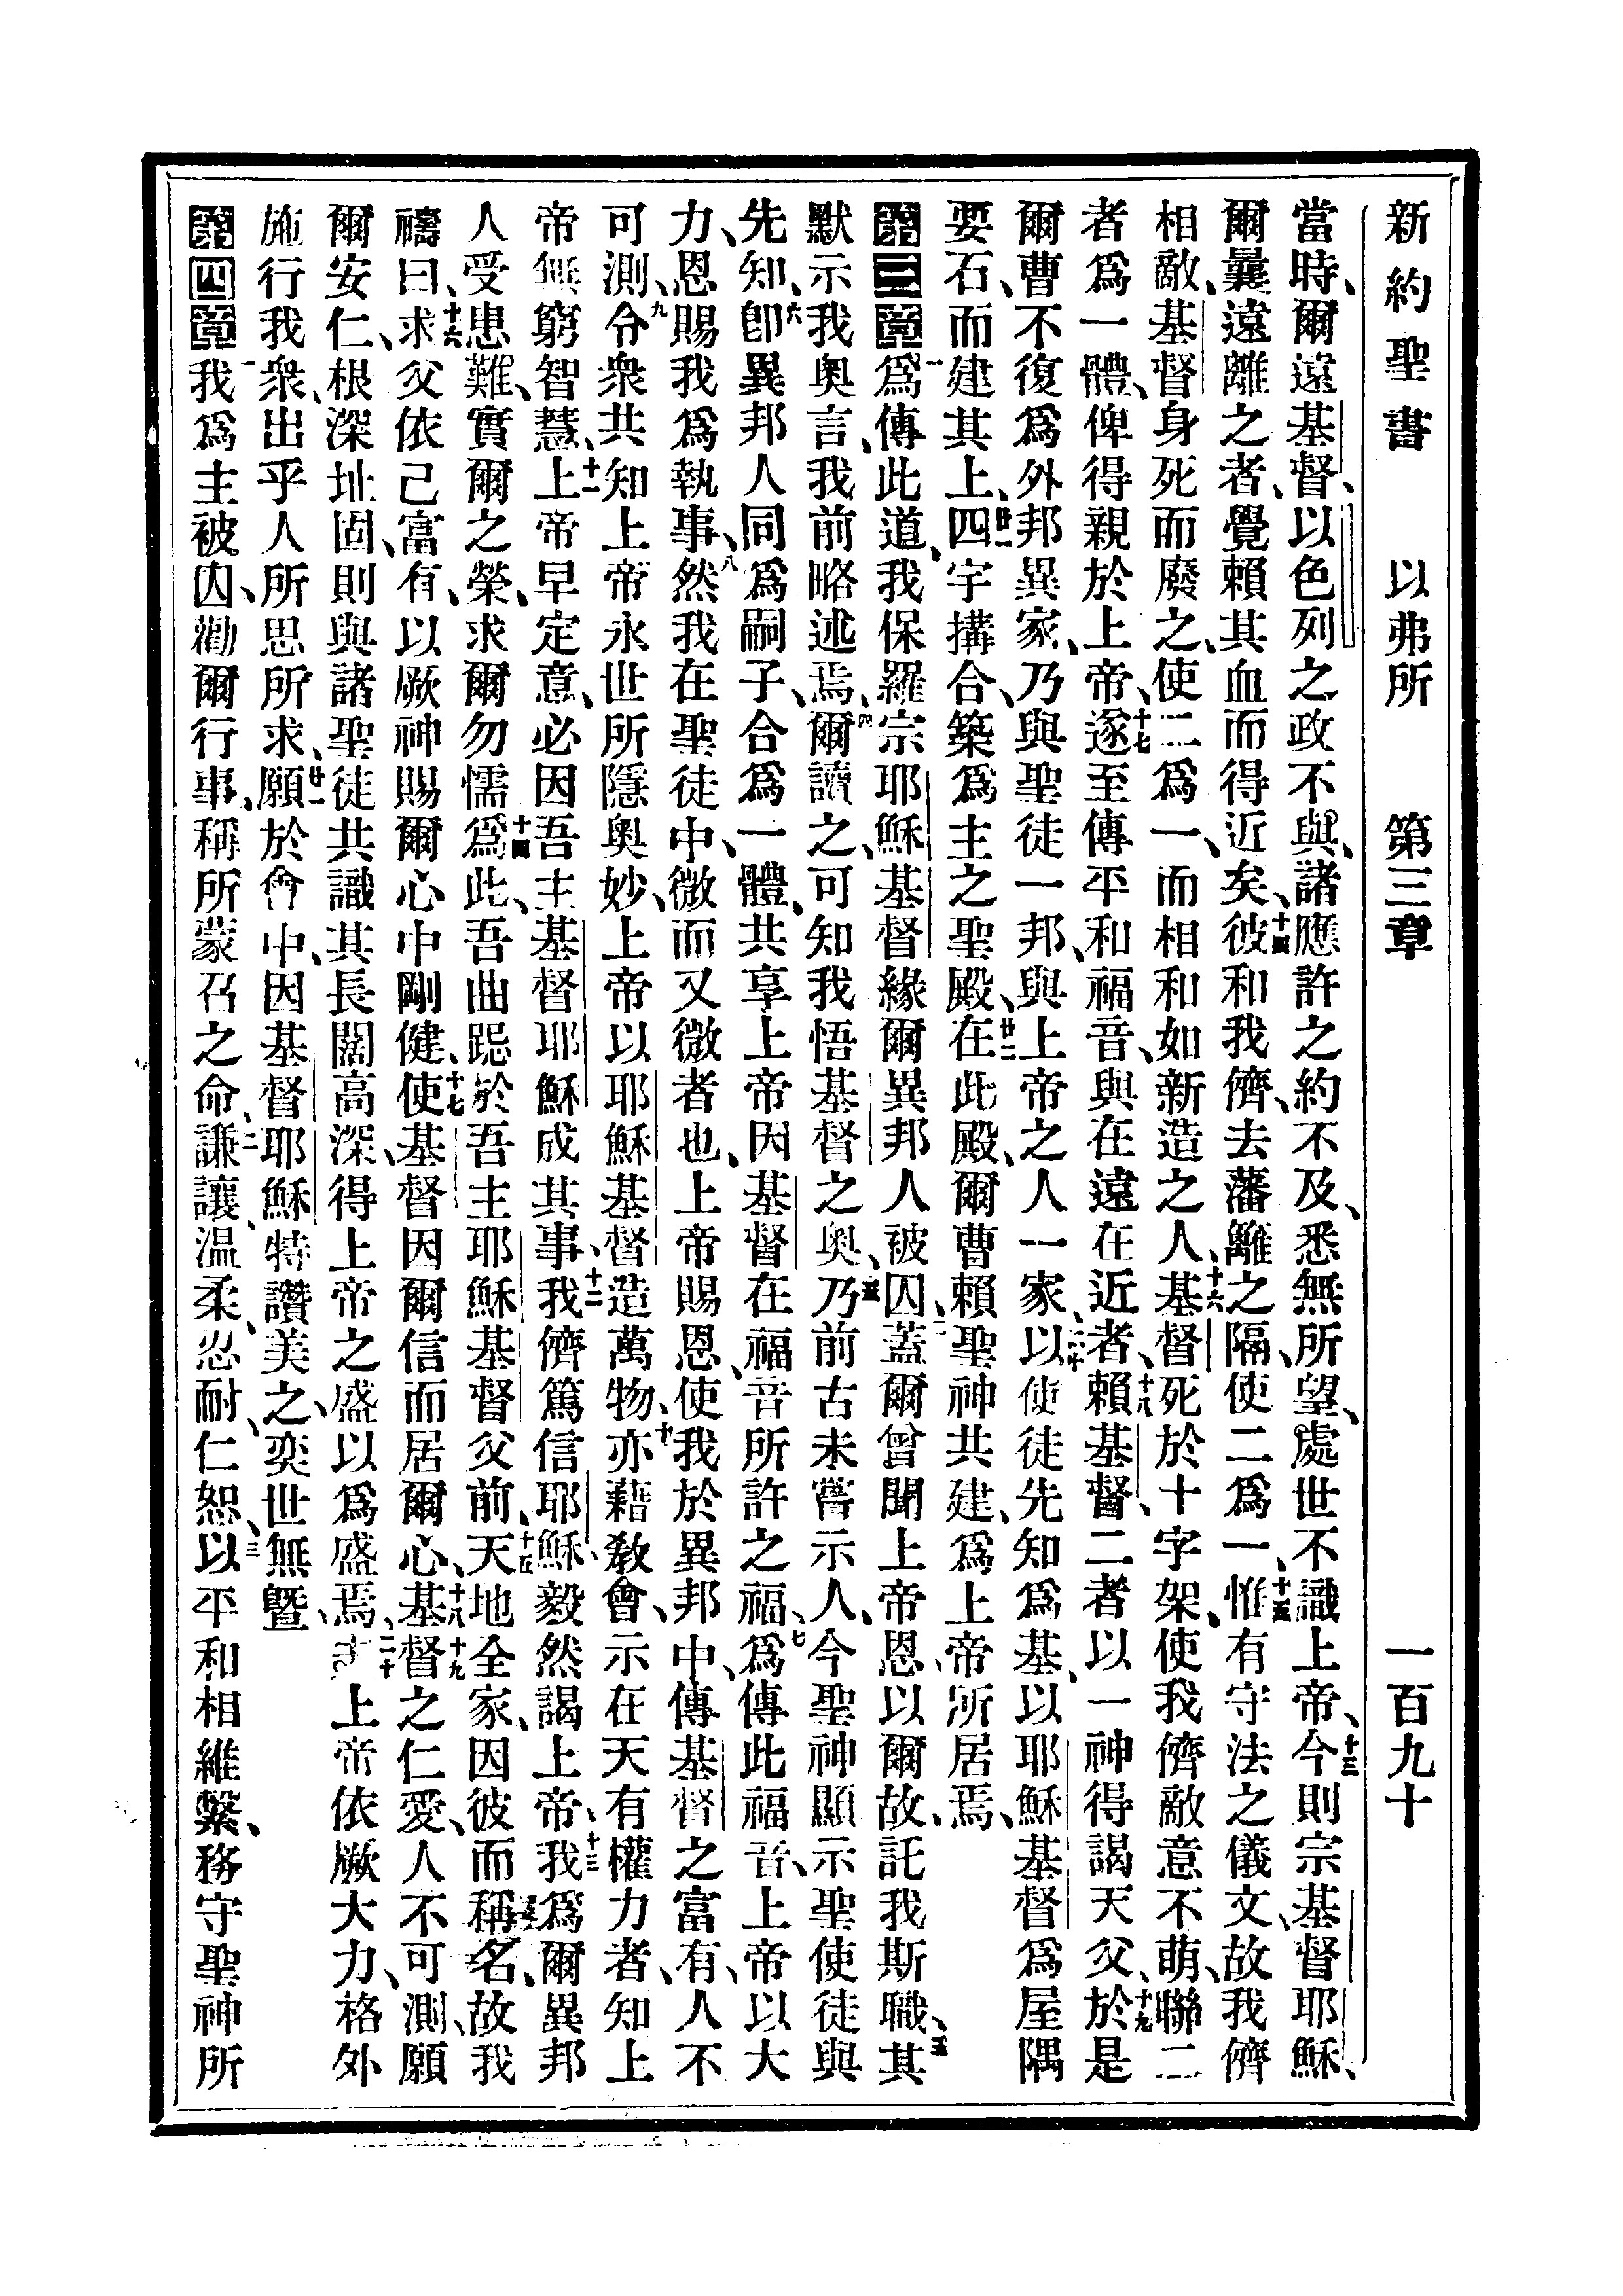 新約聖書 以弗所 第三章 一百九十
當時、爾遠基督、以色列之政不與、諸應許之約不及、悉無所望、處世不識上帝、十三今則宗基督耶穌、
爾曩遠離之者、覺賴其血而得近矣、十四彼和我儕、去藩籬之隔、使二爲一、十五惟有守法之儀文、故我儕
相敵、基督身死而廢之、使二爲一、而相和如新造之人、十六基督死於十字架、使我儕敵意不萌、聯二
者爲一體、俾得親於上帝、十七遂至傳平和福音、與在遠在近者、十八賴基督、二者以一神得謁天父、十九於是
爾曹不復爲外邦異家、乃與聖徒一邦、與上帝之人一家、二十以使徒先知爲基、以耶穌基督爲屋隅
要石、而建其上、廿一四宇搆合、築爲主之聖殿、廿二在此殿、爾曹賴聖神共建、爲上帝所居焉、
第三章一爲傳此道、我保羅宗耶穌基督、緣爾異邦人被囚、二蓋爾曾聞上帝恩、以爾故、託我斯職、三其
默示我奧言、我前略述焉、四爾讀之、可知我悟基督之奧、五乃前古未嘗示人、今聖神顯示聖使徒與
先知、六卽異邦人同爲嗣子、合爲一體、共享上帝因基督在福音所許之福、七爲傳此福音、上帝以大
力、恩賜我爲執事、八然我在聖徒中、微而又微者也、上帝賜恩、使我於異邦中、傳基督之富有、人不
可測、九令衆共知上帝永世所隱奧妙、上帝以耶穌基督造萬物、十亦藉教會、示在天有權力者、知上
帝無窮智慧、十一上帝早定意、必因吾主基督耶穌成其事、十二我儕篤信耶穌、毅然謁上帝、十三我爲爾異邦
人受患難、實爾之榮、求爾勿懦、十四爲此、吾曲跽於吾主耶穌基督父前、十五天地全家、因彼而稱名、故我
禱曰、十六求父依己富有、以厥神賜爾心中剛健、十七使基督因爾信而居爾心、十八基督十九之仁愛、人不可測、願
爾安仁、根深址固、則與諸聖徒共識其長闊高深、得上帝之盛以爲盛焉、二十上帝依厥大力、格外
施行我衆、出乎人所思所求、廿一願於會中、因基督耶穌特讚美之、奕世無曁、
第四章一我爲主被囚、勸爾行事、稱所蒙召之命、二謙讓、温柔、忍耐、仁恕、三以平和相維繫、務守聖神所